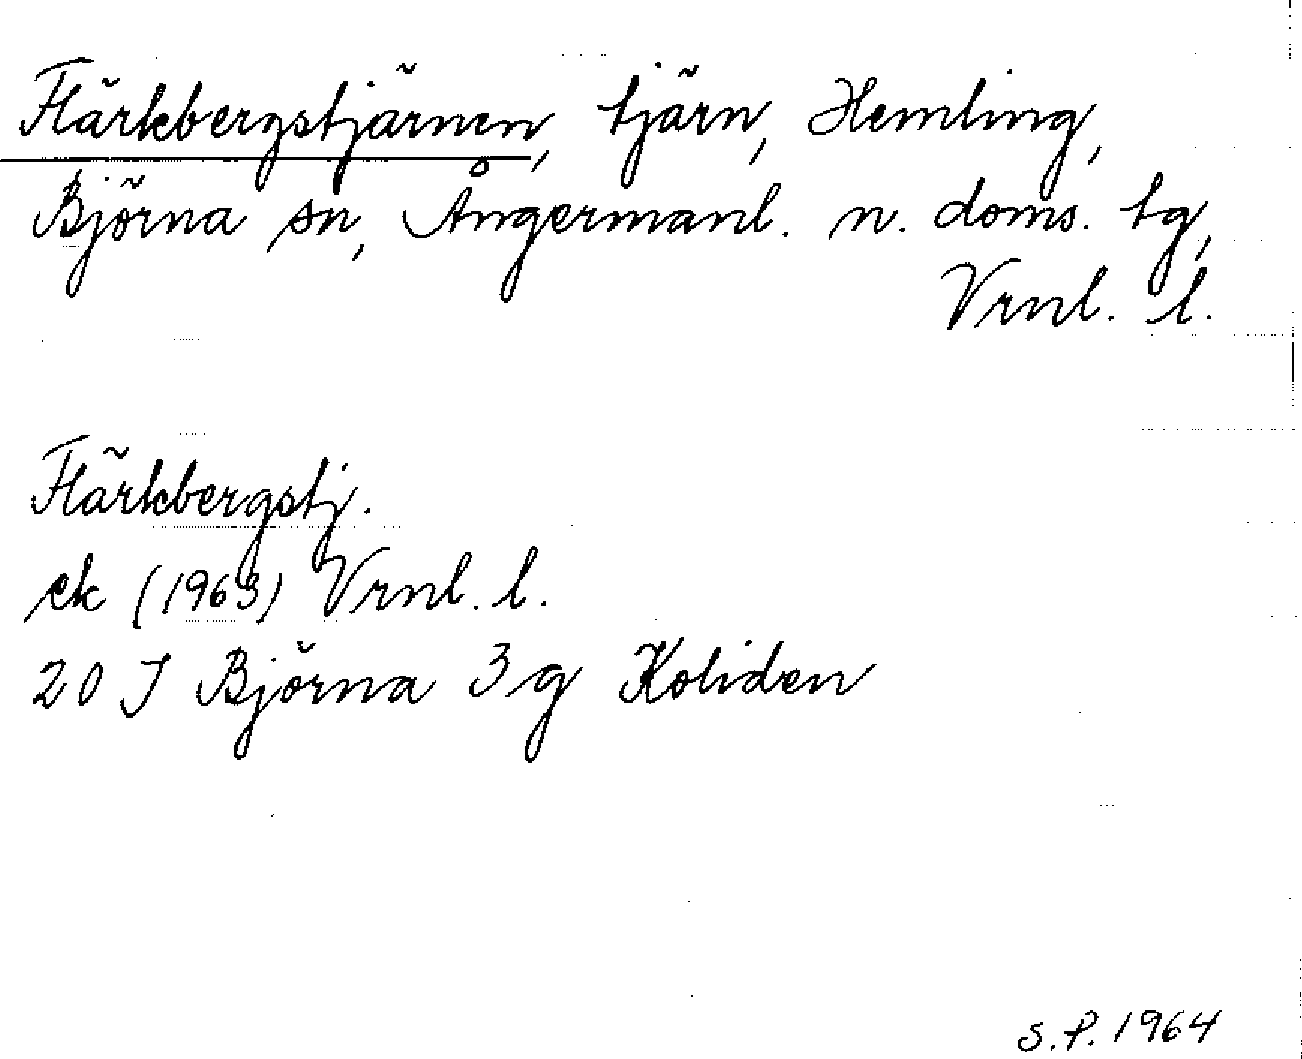 Flärkbergstjärnen, tjärn, Hemling,
Björna sn, Ångermanl. n. doms. tg,
Vrnl. l.
Flärkbergstj.
ek (1963) Vrnl. l.
20 J Björna 3 g Koliden
S.P. 1964